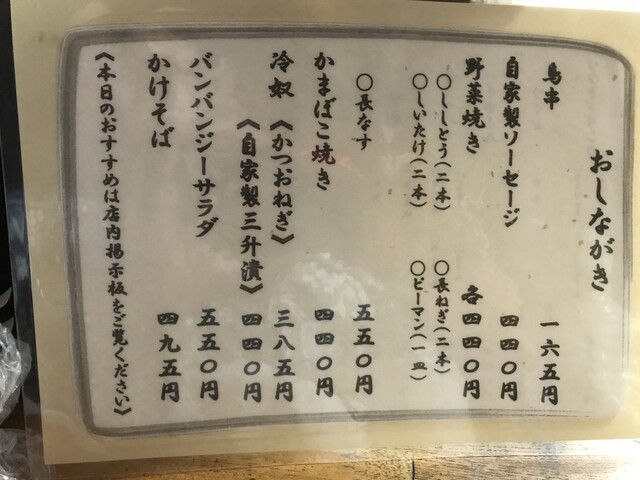 おしながき
鳥串 一六五円
自家製ソーセージ 四四〇円
野菜焼き 各四四〇円
〇ししとう(二本) 〇長ねぎ(二本)
〇しいたけ(二本) 〇ピーマン(一皿)
〇長なす 五五〇円
かまぼこ焼き 四四〇円
冷奴 《かつおねぎ》 三八五円
《自家製三升漬》 四四〇円
バンバンジーサラダ 五五〇円
かけそば 四九五円
《本日のおすすめは店内掲示板をご覧ください》